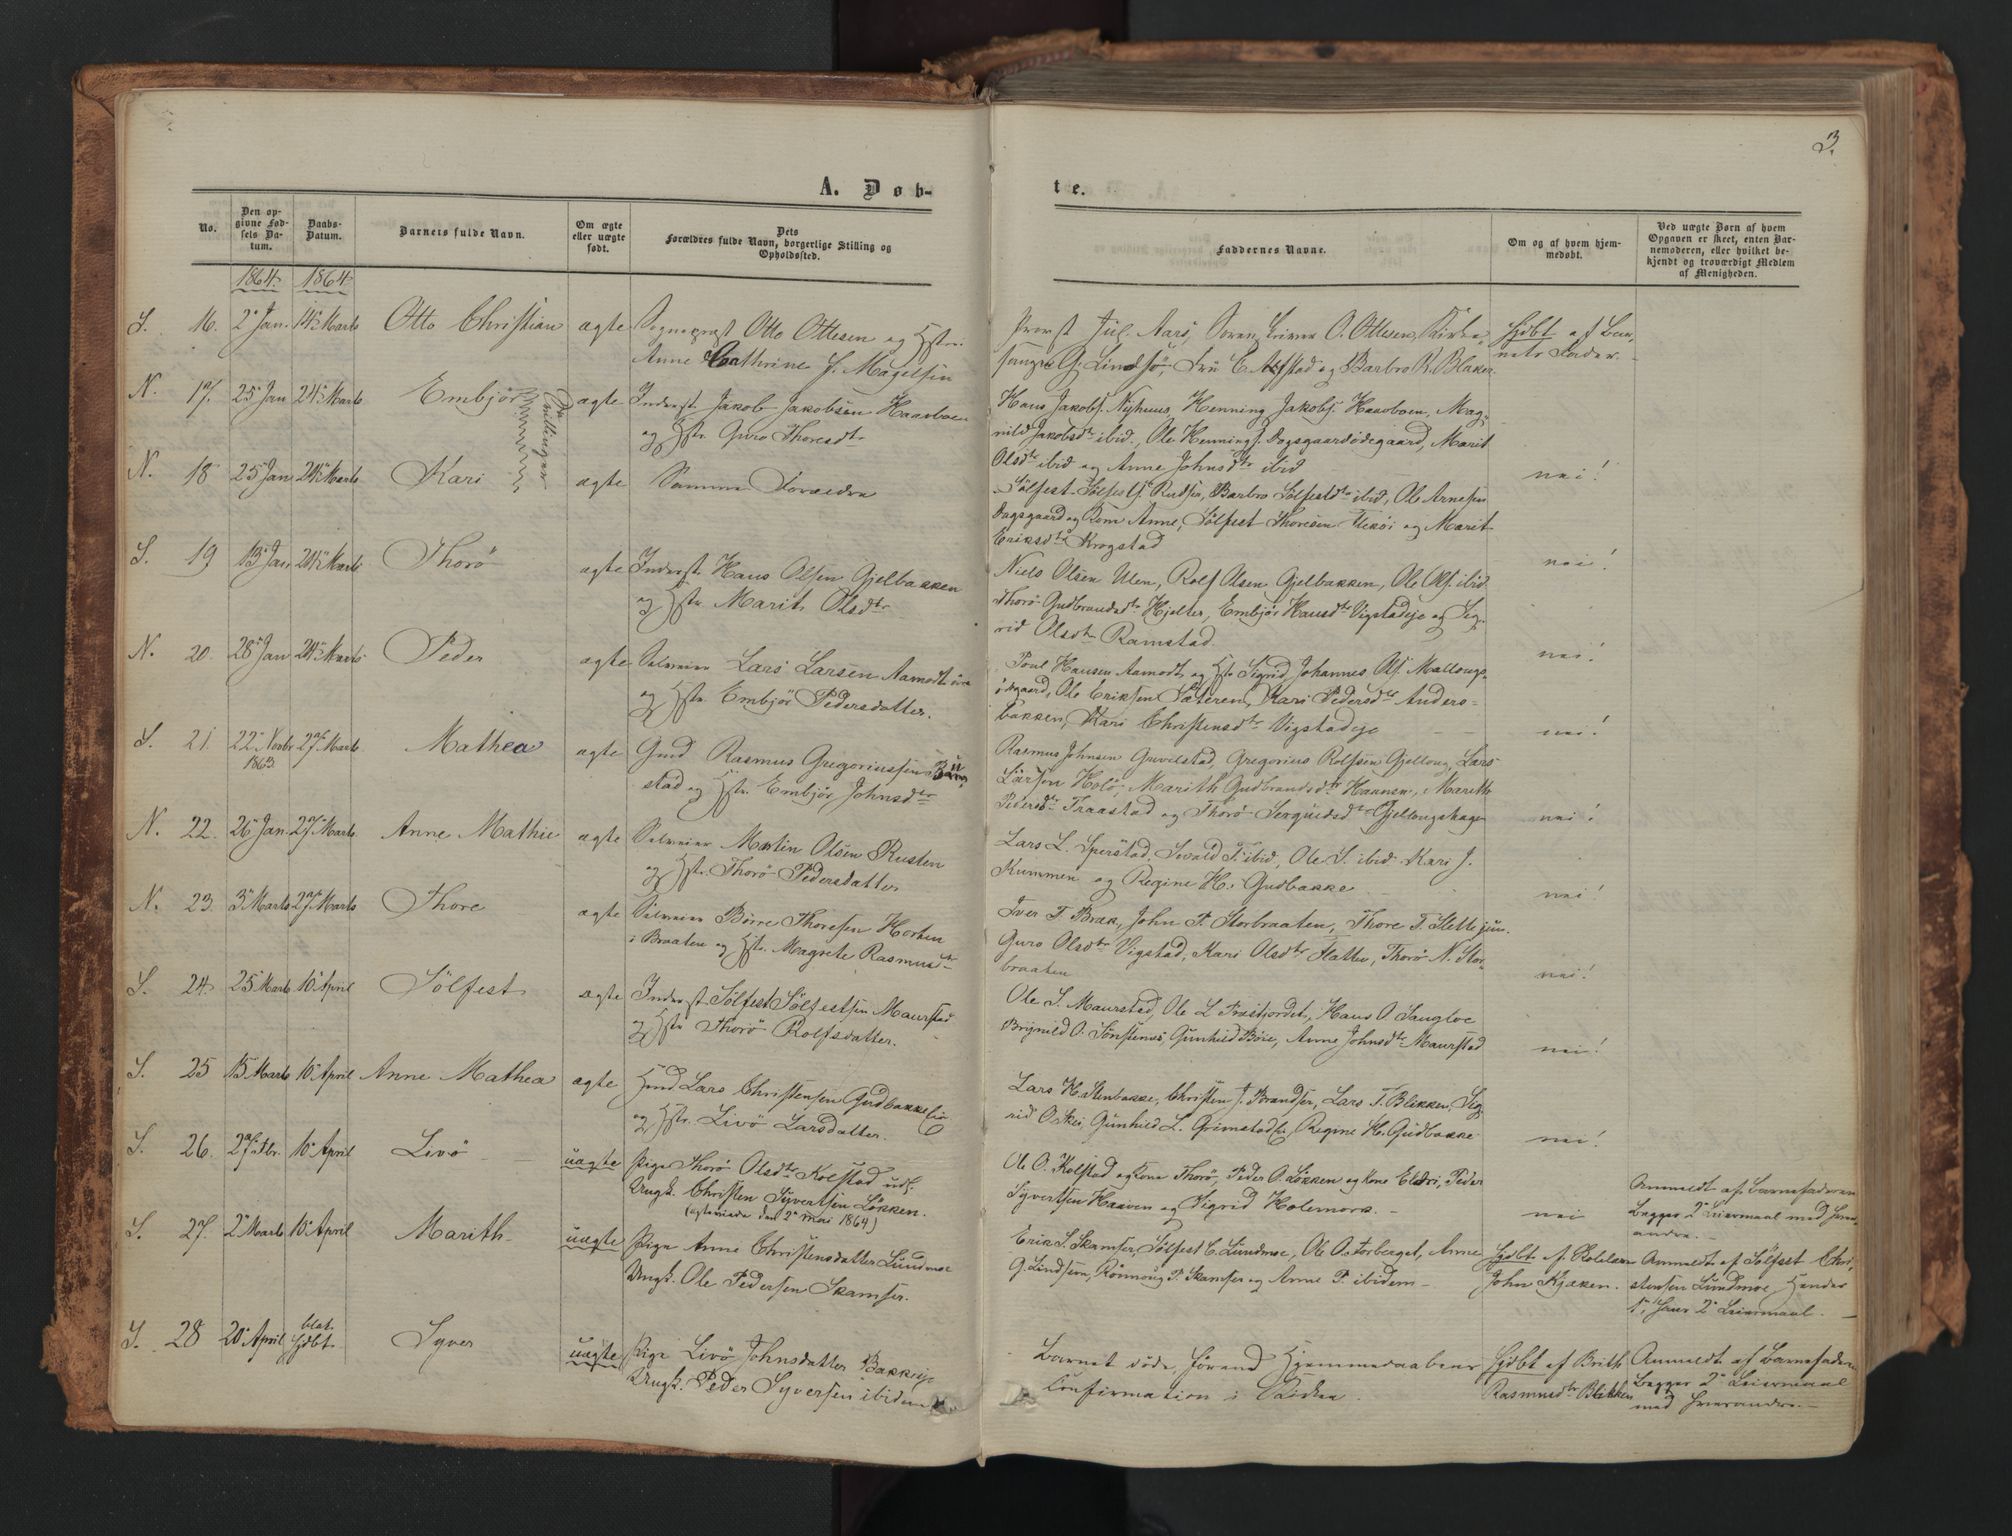 3.
A. Døb-
te.
No.
Den op-
givne Fød-
sels Da-
tum.
Daabs-
Datum.
Barnets fulde Navn.
Om ægte
eller uægte
født.
Dets
Forældres fulde Navn, borgerlige Stilling og
Opholdssted.
Faddernes Navne.
Om og af hvem hjem-
medøbt.
Ved uægte Børn af hvem
Opgaven er skeet, enten Bar-
nemoderen, eller hvilket be-
kjendt og troværdigt Medlem
af Menigheden.
1864 1864
S. 16. 2 Jan. 14 Marts Otto Christian ægte Sognepræst Otto Ottesen og Hstr.
Anne Cathrine f. Magelsen
Provst Jul. Aars, Sorenskriver O. Ottesen, Kirke-
sanger G. Lindsø, Fru E. AGstad og Barbro R. Blaker
Hjdbt af Bar-
nets Fader.
N. 17. 25 Jan 24 Marts Embjør Tvillinger ægte Inderst Jakob Jakobsen Haarboen
og Hstr. Guro Thoresdtr
Hans Jakobs. Nyhuus, Henning Jakobs. Haarboen, Mag-
nild Jakobsdtr ibid, Ole Hennings. Dagsgaardødegaard, Marit
Olsdtr ibid og Anne Johnsdtr ibid
nei!
N. 18 25 Jan 24 Marts Kari ægte Samme Forældre
Sølfest Sølfests. Rudser, Barbro Sølfestdtr ibid, Ole Arnesen
Dagsgaard og Kone Anne, Sølfest Thoresen Flekøi og Marit
Eriksdtr Krogstad
nei!
S. 19 13 Jan 24 Marts Thorö ægte Inderst Hans Olsen Gjelbakken
og Hstr. Marit Olsdtr
Niels Olsen Ulen, Rolf Olsen Gjelbakken, Ole Ols. ibid
Thorö Gudbrandsdtr Hjelter, Embjør Hansdtr Vigstadeje og Sig-
rid Olsdtr Ramstad
nei!
N. 20. 28 Jan 24 Marts Peder ægte Selveier Lars Larsen Aamodt øvre
og Hstr. Embjør Pedersdatter.
Poul Hansen Aamodt og Hstr Sigrid, Johannes Ols. Mallongs-
ødegaard, Ole Eriksen Sæteren, Kari Pedersdtr Anders-
bakken, Kari Christensdtr Vigstadeje
nei!
S. 21. 22 Novbr 1863. 27 Marts Mathea ægte Gmd Rasmus Gregoriussen
stad og Hstr. Embjør Johnsdtr
Rasmus Johnsen Gruvelstad, Gregorius Rolfsen Gjellong, Lars
Larsen Holö, Marith Gudbrandsdtr Haansn., Marith
Pedersdtr Fraastad og Thorö Serquidsdtr Gjellongshagen
nei!
N. 22. 26 Jan. 27 Marts Anne Mathie ægte Selveier Martin Olsen Rusten
og Hstr. Thorö Pedersdatter
Lars L. Sperstad, Sevald T. ibid, Ole S. ibid. Kari J.
Kummen og Regine H. Gudbakke
nei!
N. 23. 3 Marts 27 Marts Thore ægte Selveier Børre Thoresen Horten
i Braaten og Hstr. Magrete Rasmusdtr
Iver T. Bræk, John P. Storbraaten, Thore T. Slette jun.
Guro Olsdtr Vigstad, Kari Olsdtr Slatten, Thorö N. Stor-
braaten
nei!
S. 24. 25 Marts 10 April Sølfest ægte Inderst Sølfest Sølfestsen Maurstad
og Hstr Thorö Rolfsdatter.
Ole S. Maurstad, Ole L. Præstjordet, Hans O Sangloe
Brynild O. Sønstenes, Gunhild Böie, Anne Johnsdtr Maurstad
nei!
S. 25 15 Marts 10 April Anne Mathea ægte Hmd Lars Christensen Gudbakkelie
og Hstr. Livö Larsdatter.
Lars H. Stenbakke, Christen J. Brandser, Lars T. Blikken, Sig-
rid O. Skei, Gunhild L. Grimstadli, Regine H. Gudbakke
nei!
S. 26. 27 Fbr. 10 April Livö uægte Pige Thorö Olsdtr Kolstad
Ungk. Christen Syvertsen Løkken.
(ægteviede den 2 Mai 1864)
Ole O. Kolstad og Kone Thorö, Peder O. Løkken og Kone Eldri, Peder
Syvertsen Haaven og Sigrid Holemork.
nei
Anmeldt af Barnefaderen
Begges 2 Leiermaal med hver-
andre.
S. 27. 2 Marts 10 April Marith uægte Pige Anne Christensdatter Lundmoe
Ungk. Ole Pedersen Skamser.
Erik S. Skamser, Sølfest C. Lundmoe, Ole O. Storberget, Anne
G. Lindsöen, Rönnoug P. Skamser og Anne P. ibidem
Hjdbt af Skolelærer
John Kjæken.
Anmeldt af Sølfest Chri-
stensen Lundmoe, Hendes
1, hans 2 Leiermaal.
S. 28 20 April blot Hjdbt. Syver uægte Pige Livö Johnsdatter Bakkeeje
Ungk. Peder Syversen ibidem
Barnet døde førend Hjemmedaabens
Confirmation i Kirken.
Hjdbt af Brith
Rasmusdtr Blikken
Anmeldt af Barnefaderen
Begges 2 Leiermaal
med hverandre.